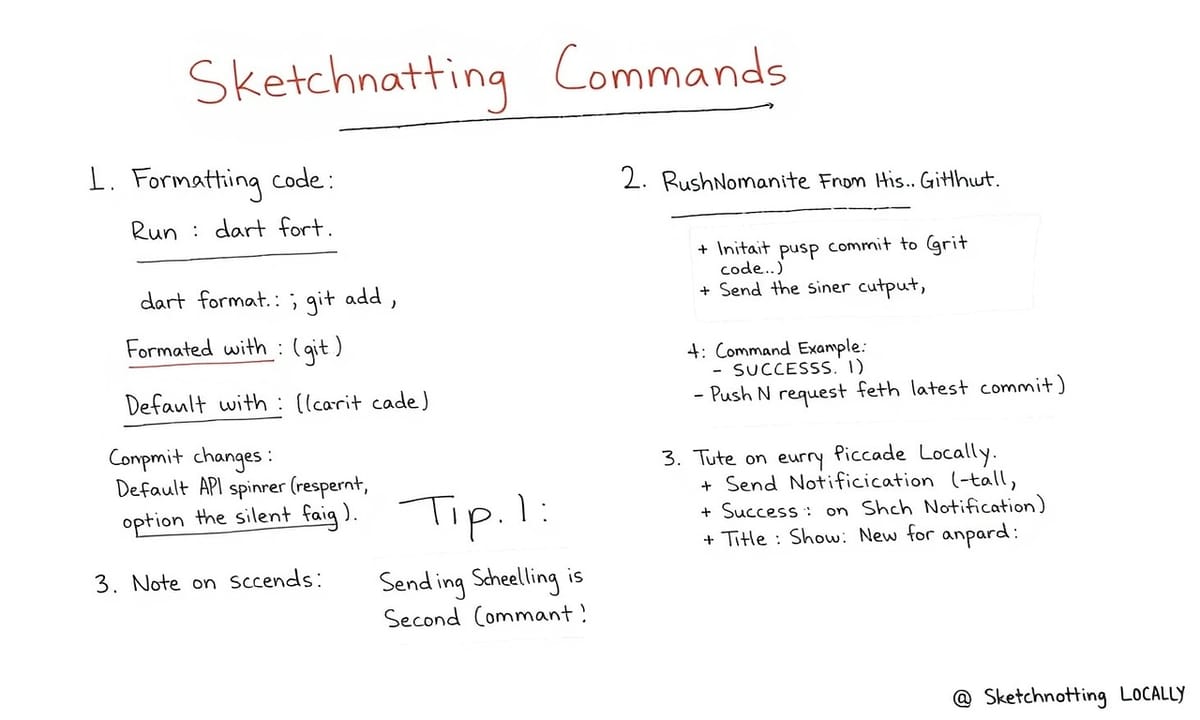 Sketchnatting Commands
1. Formattiing code:
Run : dart fort.
dart format.: ; git add ,
Formated with : (git)
Default with : ((carit cade)
Conpmit changes :
Default API spinrer (respernt,
option the silent faig).
3. Note on sccends:
Tip. 1 :
Sending Scheelling is
Second Commant !
2. RushNomanite From His.. GitHhut.
+ Initait pusp commit to (grit
code..)
+ Send the siner cutput,
4: Command Example:
- SUCCESSS. 1)
- Push N request feth latest commit)
3. Tute on eurry Piccade Locally.
+ Send Notificication (-tall,
+ Success : on Shch Notification)
+ Title : Show: New for anpard :
@ Sketchnotting LOCALLY